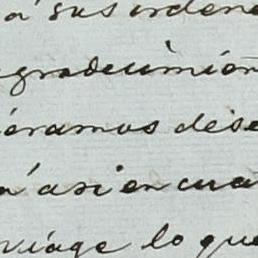 á sus ordene
gradecimien
éramos dese
a así en cua
viage lo que